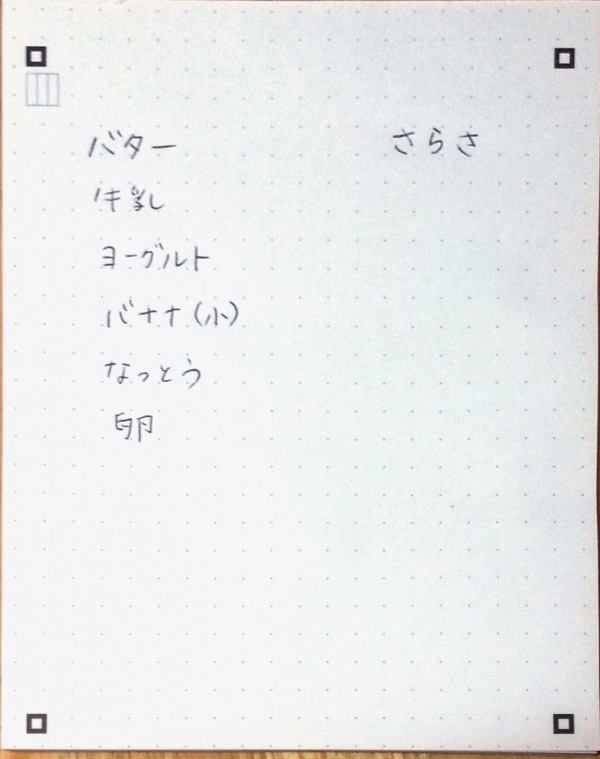 バター
さらさ
牛乳
ヨーグルト
バナナ(小)
なっとう
卵